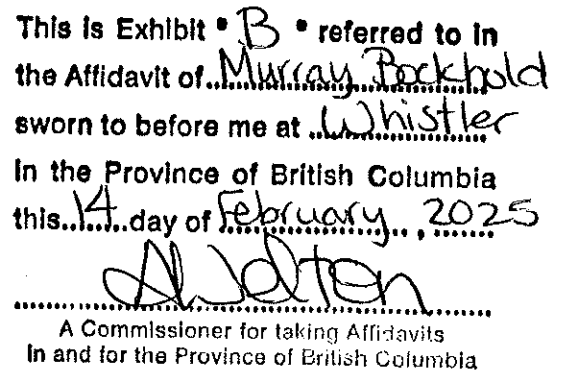 This is Exhibit "B" referred to in
the Affidavit of Murray Bockhold
sworn to before me at Whistler
in the Province of British Columbia
this 14 day of February, 2025
A Commissioner for taking Affidavits
in and for the Province of British Columbia